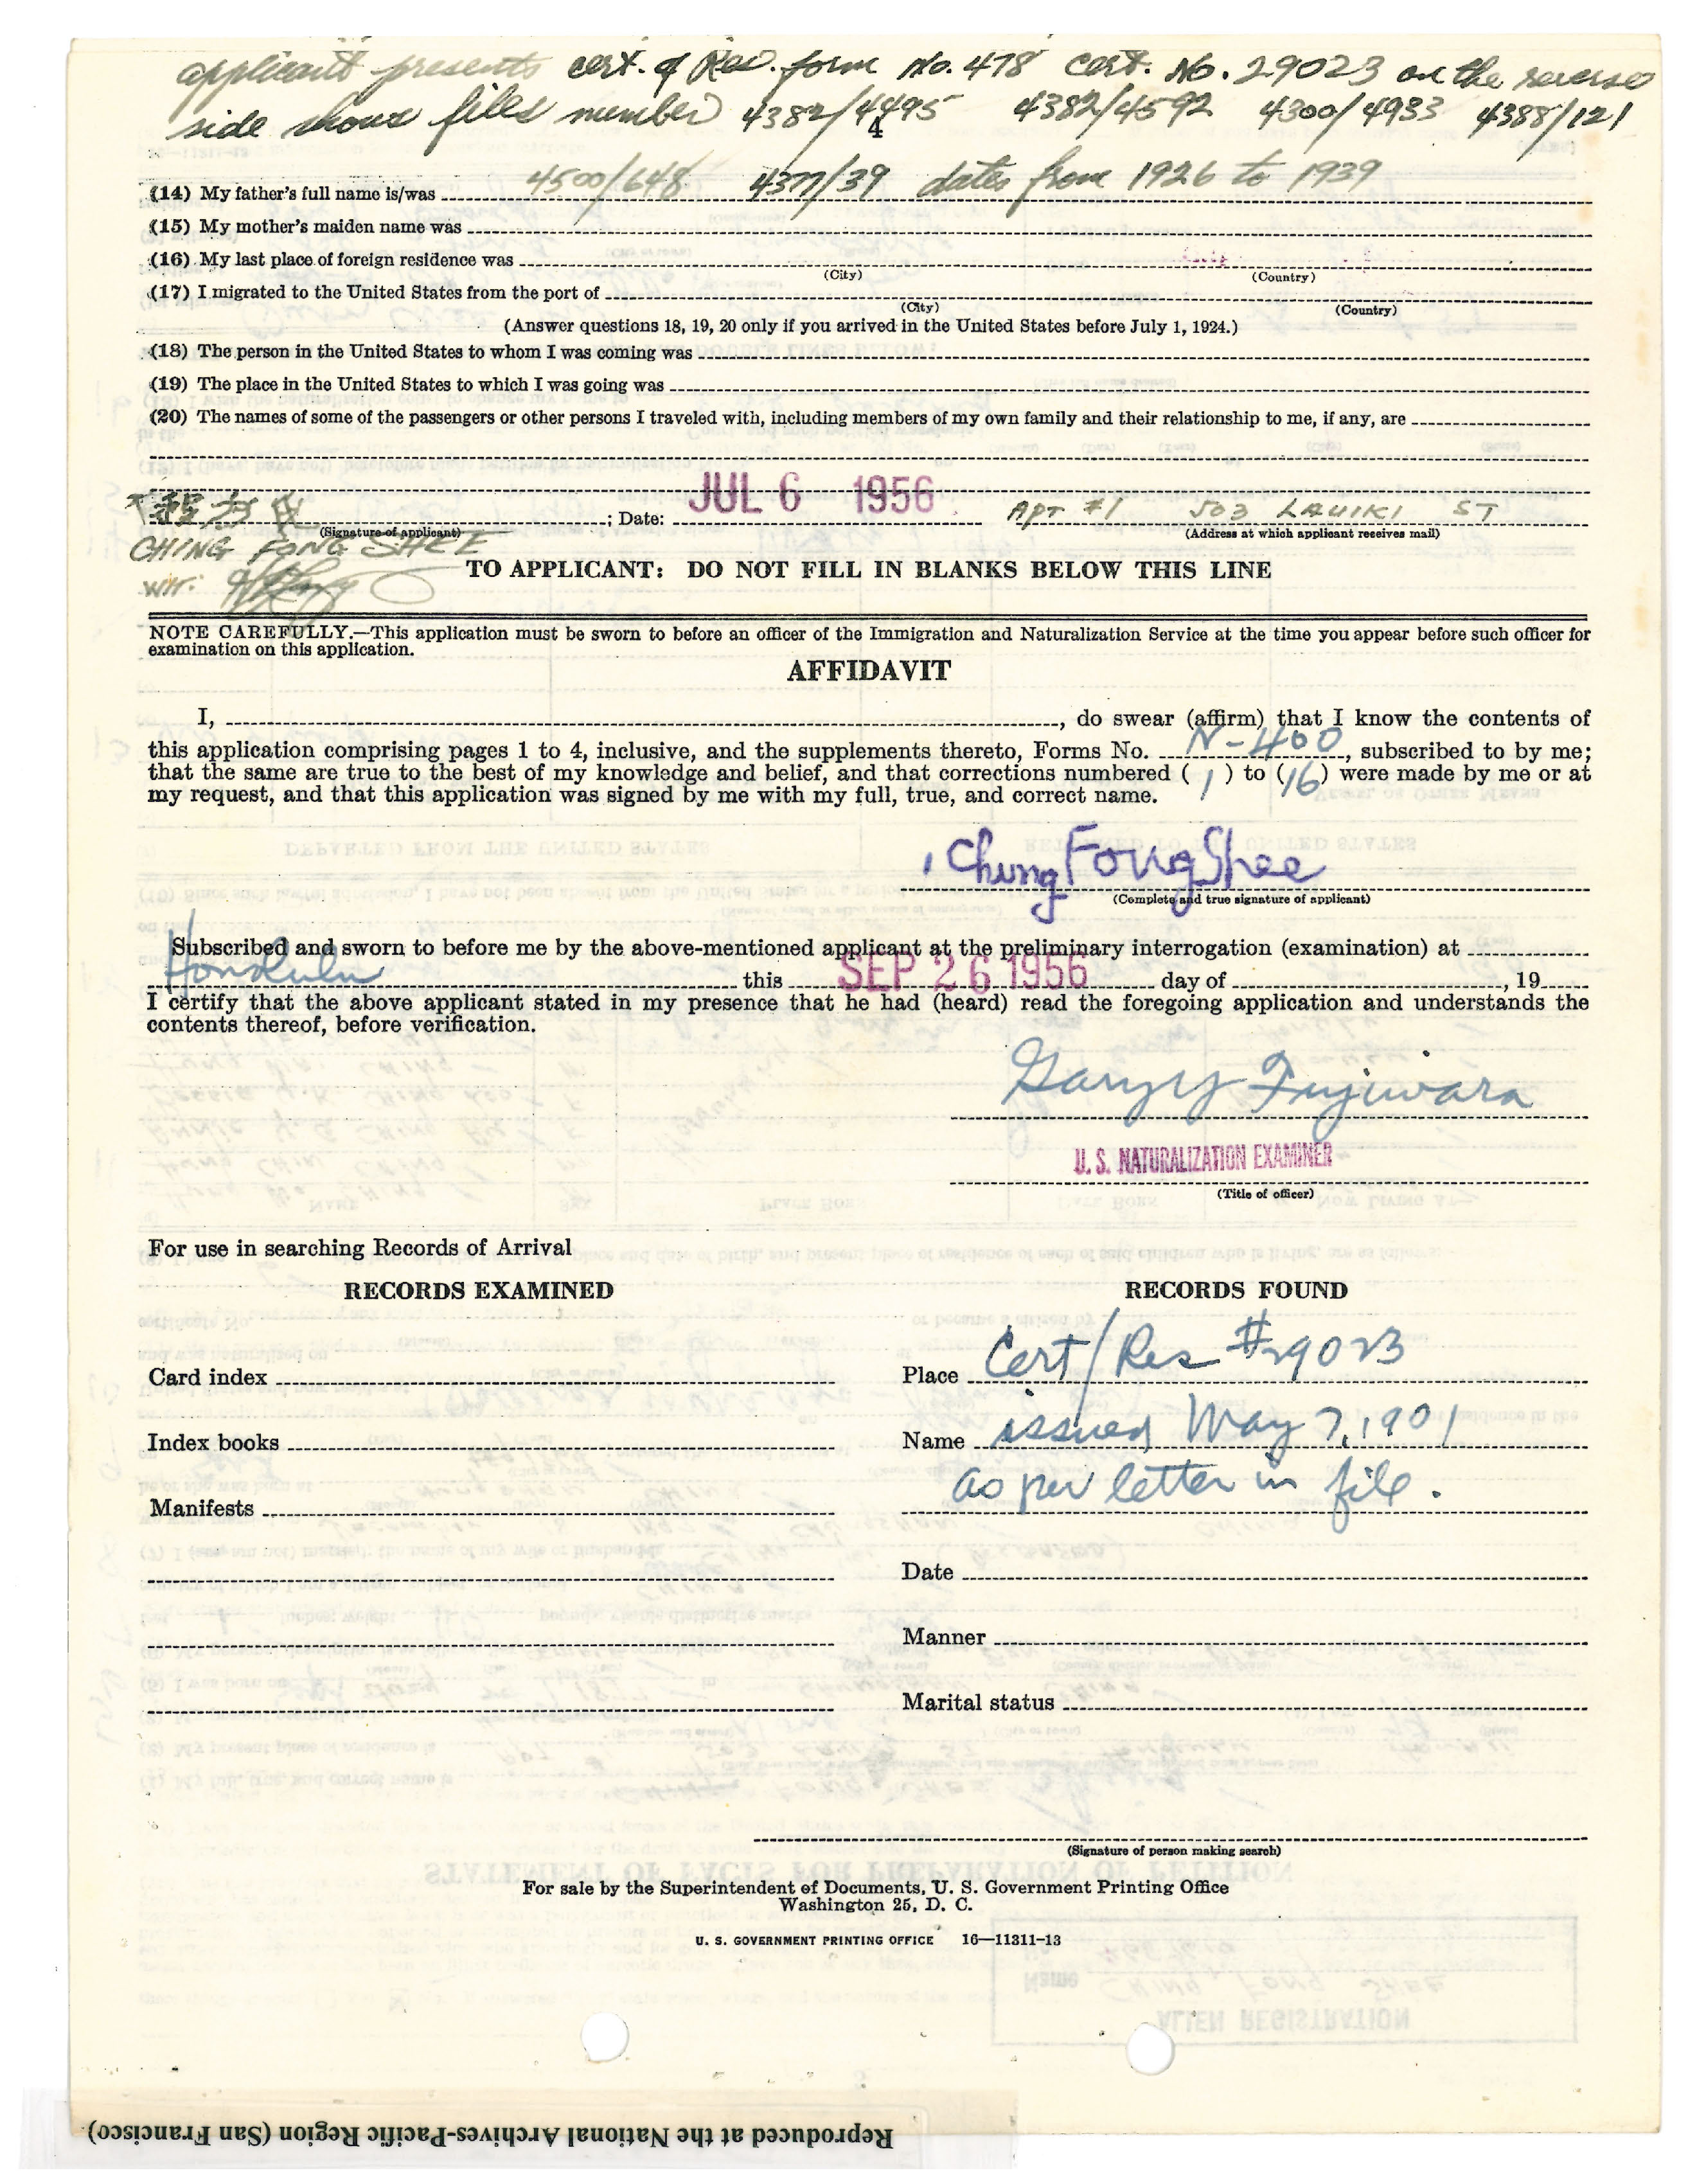 applicant presents cert. of Res. form No. 478 cert. No. 29023 on the reverse
side shows files number 4382/4495 4382/4592 4300/4933 4388/121
4
4500/648 4377/39 dates from 1926 to 1939
(14) My father's full name is/was
(15) My mother's maiden name was
(16) My last place of foreign residence was
(City) (Country)
(17) I migrated to the United States from the port of
(City) (Country)
(Answer questions 18, 19, 20 only if you arrived in the United States before July 1, 1924.)
(18) The person in the United States to whom I was coming was
(19) The place in the United States to which I was going was
(20) The names of some of the passengers or other persons I traveled with, including members of my own family and their relationship to me, if any, are
; Date: JUL 6 1956 APT #1 503 LAUIKI ST
(Signature of applicant) (Address at which applicant receives mail)
CHING FONG SHEE
Wit:
TO APPLICANT: DO NOT FILL IN BLANKS BELOW THIS LINE
NOTE CAREFULLY.—This application must be sworn to before an officer of the Immigration and Naturalization Service at the time you appear before such officer for
examination on this application.
AFFIDAVIT
I, , do swear (affirm) that I know the contents of
this application comprising pages 1 to 4, inclusive, and the supplements thereto, Forms No. N-400, subscribed to by me;
that the same are true to the best of my knowledge and belief, and that corrections numbered ( 1 ) to (16) were made by me or at
my request, and that this application was signed by me with my full, true, and correct name.
Chung Fong Shee
(Complete and true signature of applicant)
Subscribed and sworn to before me by the above-mentioned applicant at the preliminary interrogation (examination) at
Honolulu this SEP 26 1956 day of , 19
I certify that the above applicant stated in my presence that he had (heard) read the foregoing application and understands the
contents thereof, before verification.
Gary Y Fujiwara
U. S. NATURALIZATION EXAMINER
(Title of officer)
For use in searching Records of Arrival
RECORDS EXAMINED RECORDS FOUND
Card index Place Cert/Res #29023
Index books Name issued May 7, 1901
Manifests as per letter in file.
Date
Manner
Marital status
(Signature of person making search)
For sale by the Superintendent of Documents, U. S. Government Printing Office
Washington 25, D. C.
U. S. GOVERNMENT PRINTING OFFICE 16—11311-13
Reproduced at the National Archives-Pacific Region (San Francisco)